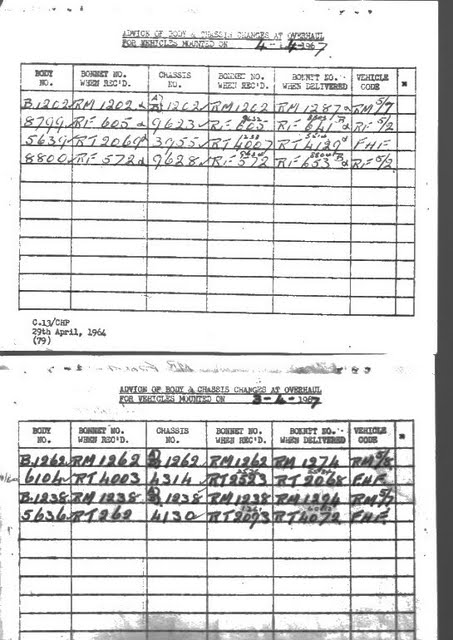 ADVICE OF BODY & CHASSIS CHANGES AT OVERHAUL
FOR VEHICLES MOUNTED ON 4-4-1967
BODY NO. BONNET NO. WHEN REC'D. CHASSIS NO. BONNET NO. WHEN REC'D. BONNET NO. WHEN DELIVERED VEHICLE CODE
B.1202 RM 1202 1202 RM 1202 RM 1287 RM 5/7
8799 RF 605 9623 RF 605 RF 641 RF 5/2
5639 RT 2069 3955 RT 4007 RT 4129 FHF
8800 RF 572 9628 RF 572 RF 653 RF 5/2
C.13/CHP
29th April, 1964
(79)
ADVICE OF BODY & CHASSIS CHANGES AT OVERHAUL
FOR VEHICLES MOUNTED ON 3-4-1967
BODY NO. BONNET NO. WHEN REC'D. CHASSIS NO. BONNET NO. WHEN REC'D. BONNET NO. WHEN DELIVERED VEHICLE CODE
B.1262 RM 1262 1262 RM 1262 RM 1274 RM 5/8
6104 RT 4003 4314 RT 2523 RT 2068 FHF
B.1238 RM 1238 1238 RM 1238 RM 1294 RM 5/7
5636 RT 262 4130 RT 2093 RT 4072 FHF